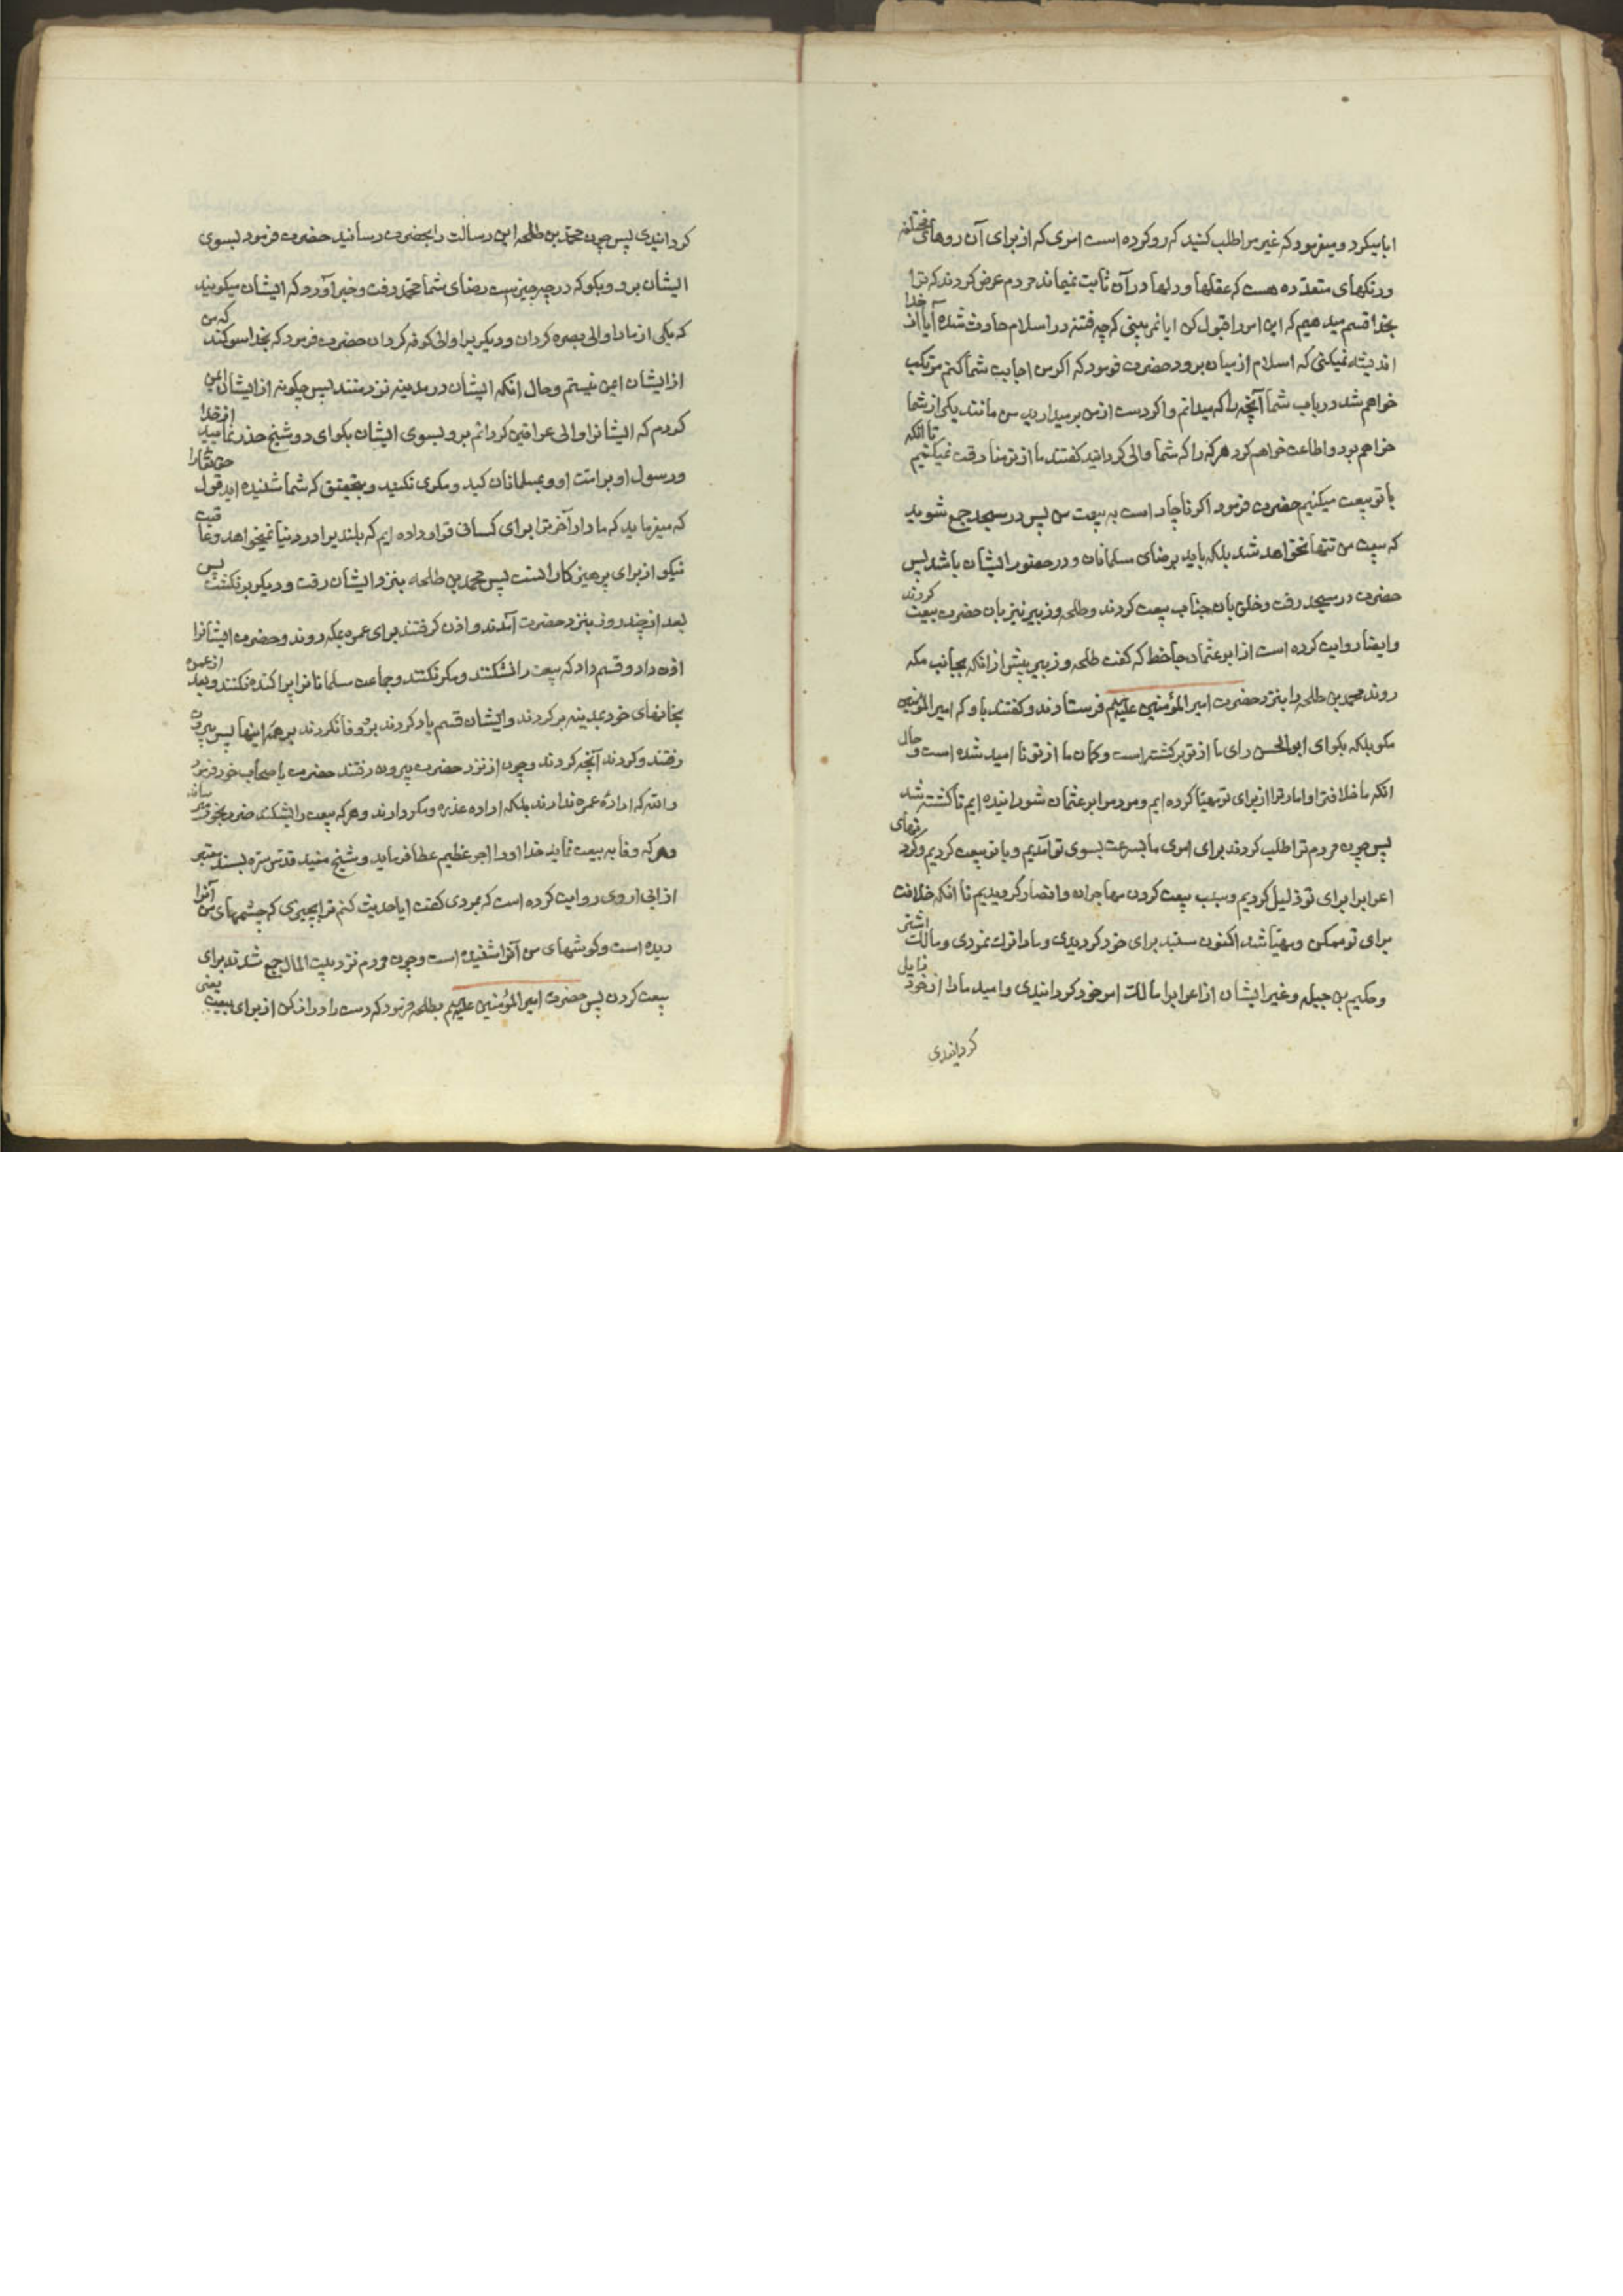 ابا میکرد و میفرمود که غیر مرا طلب کنید که رو کرده است امری که از برای آن روهای مختلفه
ورنکهای متعدده هست که عقلها و دلها در آن ثابت نمیماند مردم عرض کردند که ترا
بخدا قسم میدهیم که این امر را قبول کن ایا نمی بینی که چه فتنه در اسلام حادث شده آیا از خدا
اندیشه نمیکنی که اسلام از میان برود حضرت فرمود که اکر من اجابت شما کنم مرتکب
خواهم شد در باب شما آنچه را که میدانم و اکر دست از من بر میدارید من مانند یکی از شما
خواهم بود و اطاعت خواهم کرد هر که را که شما والی کردانید کفتند ما از تو مفارقت نمیکنیم تا آنکه
با تو بیعت میکنیم حضرت فرمود اکر ناچار است به بیعت من پس در مسجد جمع شوید
که بیعت من تنها نخواهد شد بلکه باید برضای مسلمانان و در حضور ایشان باشد پس
حضرت در مسجد رفت و خلق بان جناب بیعت کردند و طلحه و زبیر نیز بان حضرت بیعت کردند
وایضا روایت کرده است از ابو عثمان جاحظ که کفت طلحه و زبیر پیش از انکه بجانب مکه
روند محمد بن طلحه را بنزد حضرت امیر المؤمنین علیه‌السلم فرستادند و کفتند باو که امیر المؤمنین
مکو بلکه بکو ای ابو الحسن رای ما از تو برکشته است و کمان ما از تو نا امید شده است و حال
انکه ما خلافت و امارت را از برای تو مهیا کرده ایم و مردم را بر عثمان شورانیده ایم تا کشته شد
پس چون مردم ترا طلب کردند برای امری ما بسرعت بسوی تو آمدیم و با تو بیعت کردیم و کردنهای
اعرابرا برای تو ذلیل کردیم و سبب بیعت کردن مهاجران و انصار کردیدیم تا انکه خلافت
برای تو ممکن و مهیا شد اکنون مستبد برای خود کردیدی و ما را ترک نمودی و مالک اشتر
و حکیم بن جبله و غیر ایشان از اعرابرا مالک امر خود کردانیدی و امید ما را از خود زایل
کردانیدی
کردانیدی پس چون محمد بن طلحه این رسالت را بحضرت رسانید حضرت فرمود بسوی
ایشان برو و بکو که در چه چیز است رضای شما محمد رفت و خبر آورد که ایشان میکویند
که یکی از ما را والی بصره کردان و دیکریرا والی کوفه کردان حضرت فرمود که بخدا سوکند که من
از ایشان ایمن نیستم و حال انکه ایشان در مدینه نزد منند پس چکونه از ایشان ایمن
کردم که ایشانرا والی عراقین کردانم برو بسوی ایشان بکو ای دو شیخ حذر نمایید از خدا
و رسول او بر امت او و بمسلمانان کید و مکری نکنید و بتحقیق که شما شنیده اید قول حق تعالی را
که میفرماید که ما دار آخرت را برای کسانی قرار داده ایم که بلندیرا در دنیا نمیخواهد و عاقبت
نیکو از برای پرهیز کاران است پس محمد بن طلحه بنزد ایشان رفت و دیکر بر نکشت پس
بعد از چند روز بنزد حضرت آمدند و اذن کرفتند برای عمره بمکه روند و حضرت ایشانرا
اذن داد و قسم داد که بیعت را نشکنند و مکر نکنند و جماعت مسلمانانرا پراکنده نکنند و بعد از عمره
بخانهای خود بمدینه بر کردند و ایشان قسم یاد کردند بر همه اینها پس بیرون
رفتند و کردند آنچه کردند و چون از نزد حضرت بیرون رفتند حضرت باصحاب خود فرمود
والله که اراده عمره ندارند بلکه اراده غدر و مکر دارند و هر که بیعت را بشکند ضرر بخود میرساند
و هر که وفا به بیعت نماید خدا او را اجر عظیم عطا فرماید و شیخ مفید قدس سره بسند معتبر
از ابی اروی روایت کرده است که بمردی کفت ایا حدیث کنم ترا بچیزی که چشمهای من آنرا
دیده است و کوشهای من آنرا شنیده است و چون مردم نزد بیت المال جمع شدند برای
بیعت کردن پس حضرت امیر المؤمنین علیه‌السلم بطلحه فرمود که دست را دراز کن از برای بیعت یعنی